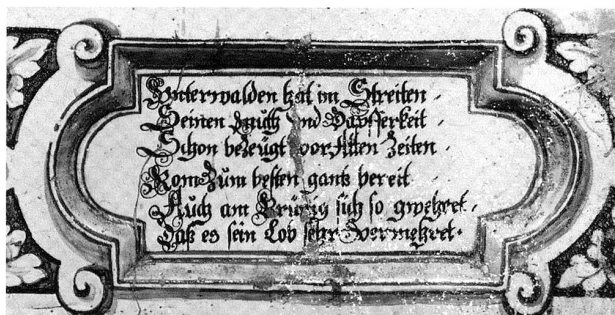 Vnterwalden hat im Streiten
Seinen Muth und Dapfferkeit
Schon bezeugt vor Alten Zeiten
Rom zum besten gantz bereit
Auch am Brünig sich so gwehret
Daß es sein Lob sehr vermehret.